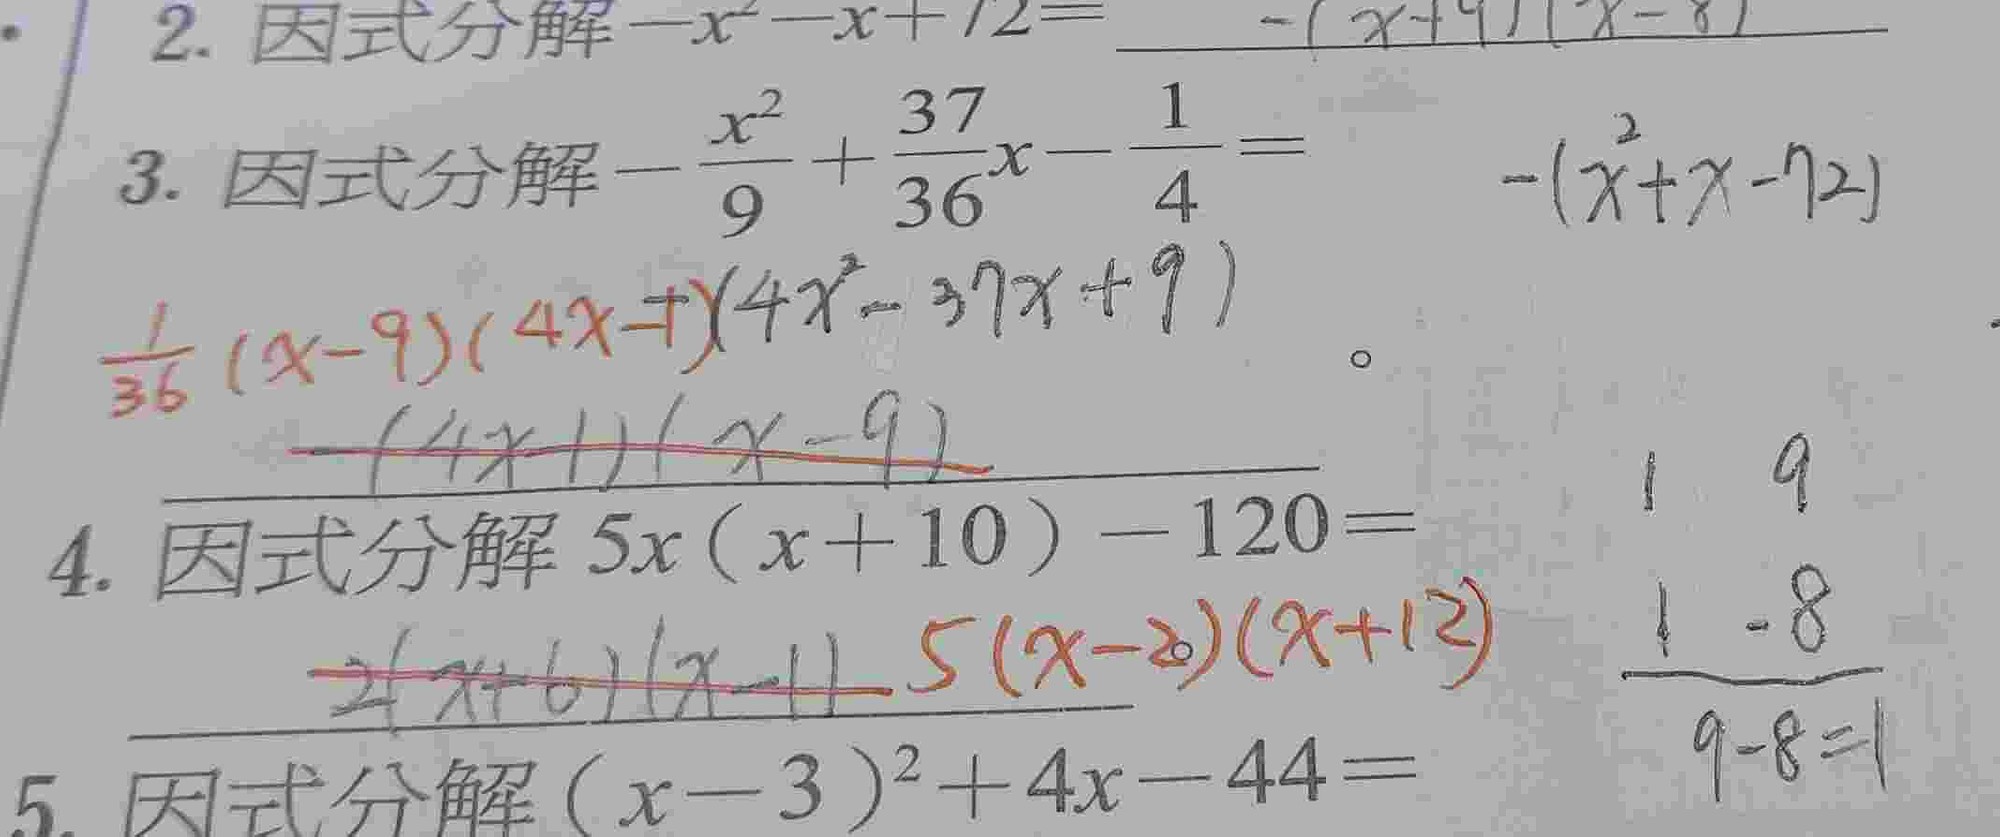 2. 因式分解 −x² − x + 72 = −(x+9)(x−8)
3. 因式分解 − x²/9 + 37/36 x − 1/4 =
−(x²+x−72)
1/36 (x−9)(4x−1) (4x²−37x+9)
。
−(4x−1)(x−9)
1 9
4. 因式分解 5x(x+10)−120=
1 −8
2(x+6)(x−1) 5(x−2)(x+12)
9−8=1
5. 因式分解 (x−3)²+4x−44=